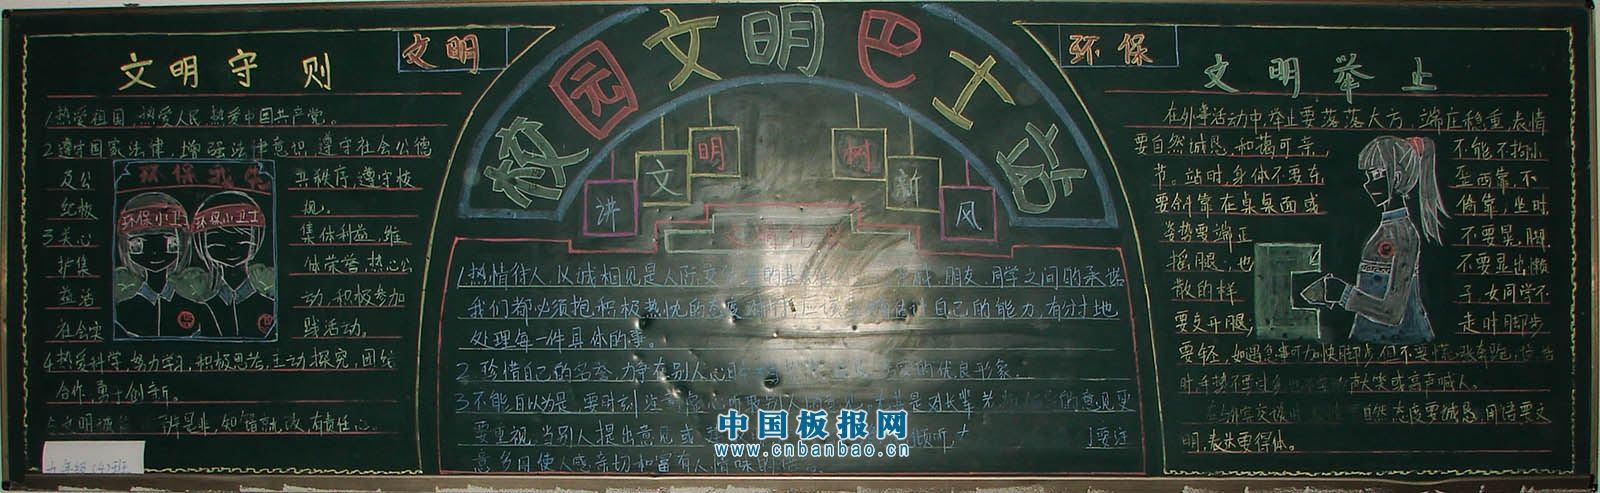 文明守则
文明
校园文明巴士站
环保
文明举止
讲文明树新风
1热爱祖国,热爱人民,热爱中国共产党。
2遵守国家法律,增强法律意识,遵守社会公德
及公共秩序,遵守校
纪校规。
3关心集体利益,维
护集体荣誉,热心公
益活动,积极参加
社会实践活动。
4热爱科学,努力学习,积极思考,主动探究,团结
合作,勇于创新。
文明诚 明是非,知错就改,有责任心。
环保
环保小卫士
环保小卫士
九年级(4)班
1热情待人,以诚相见是人际交 的基 朋友、同学之间的承诺
我们都必须抱积极热忱的态度 自己的能力,有分寸地
处理每一件具体的事。
2珍惜自己的名誉,力争在别人心目 的优良形象。
3不能自以为是,要时刻注 别人 是对长辈 的意见更
要重视,当别人提出意见或 倾听, 要注
意多用使人感亲切和富有人情味的
在外事活动中,举止要落落大方,端庄稳重,表情
要自然诚恳,和蔼可亲,不能不拘小
节。站时,身体不要东歪西靠,不
要斜靠在桌桌面或倚靠,坐时
姿势要端正不要晃脚
摇腿,也不要显出懒
散的样子,女同学不
要叉开腿,走时脚步
要轻,如遇急事可加快脚步,但不要慌张奔跑,
时手势不要过 大笑或高声喊人。
自然态度要诚恳,用语要文
明,表达要得体。
中国板报网
www.cnbanbao.cn